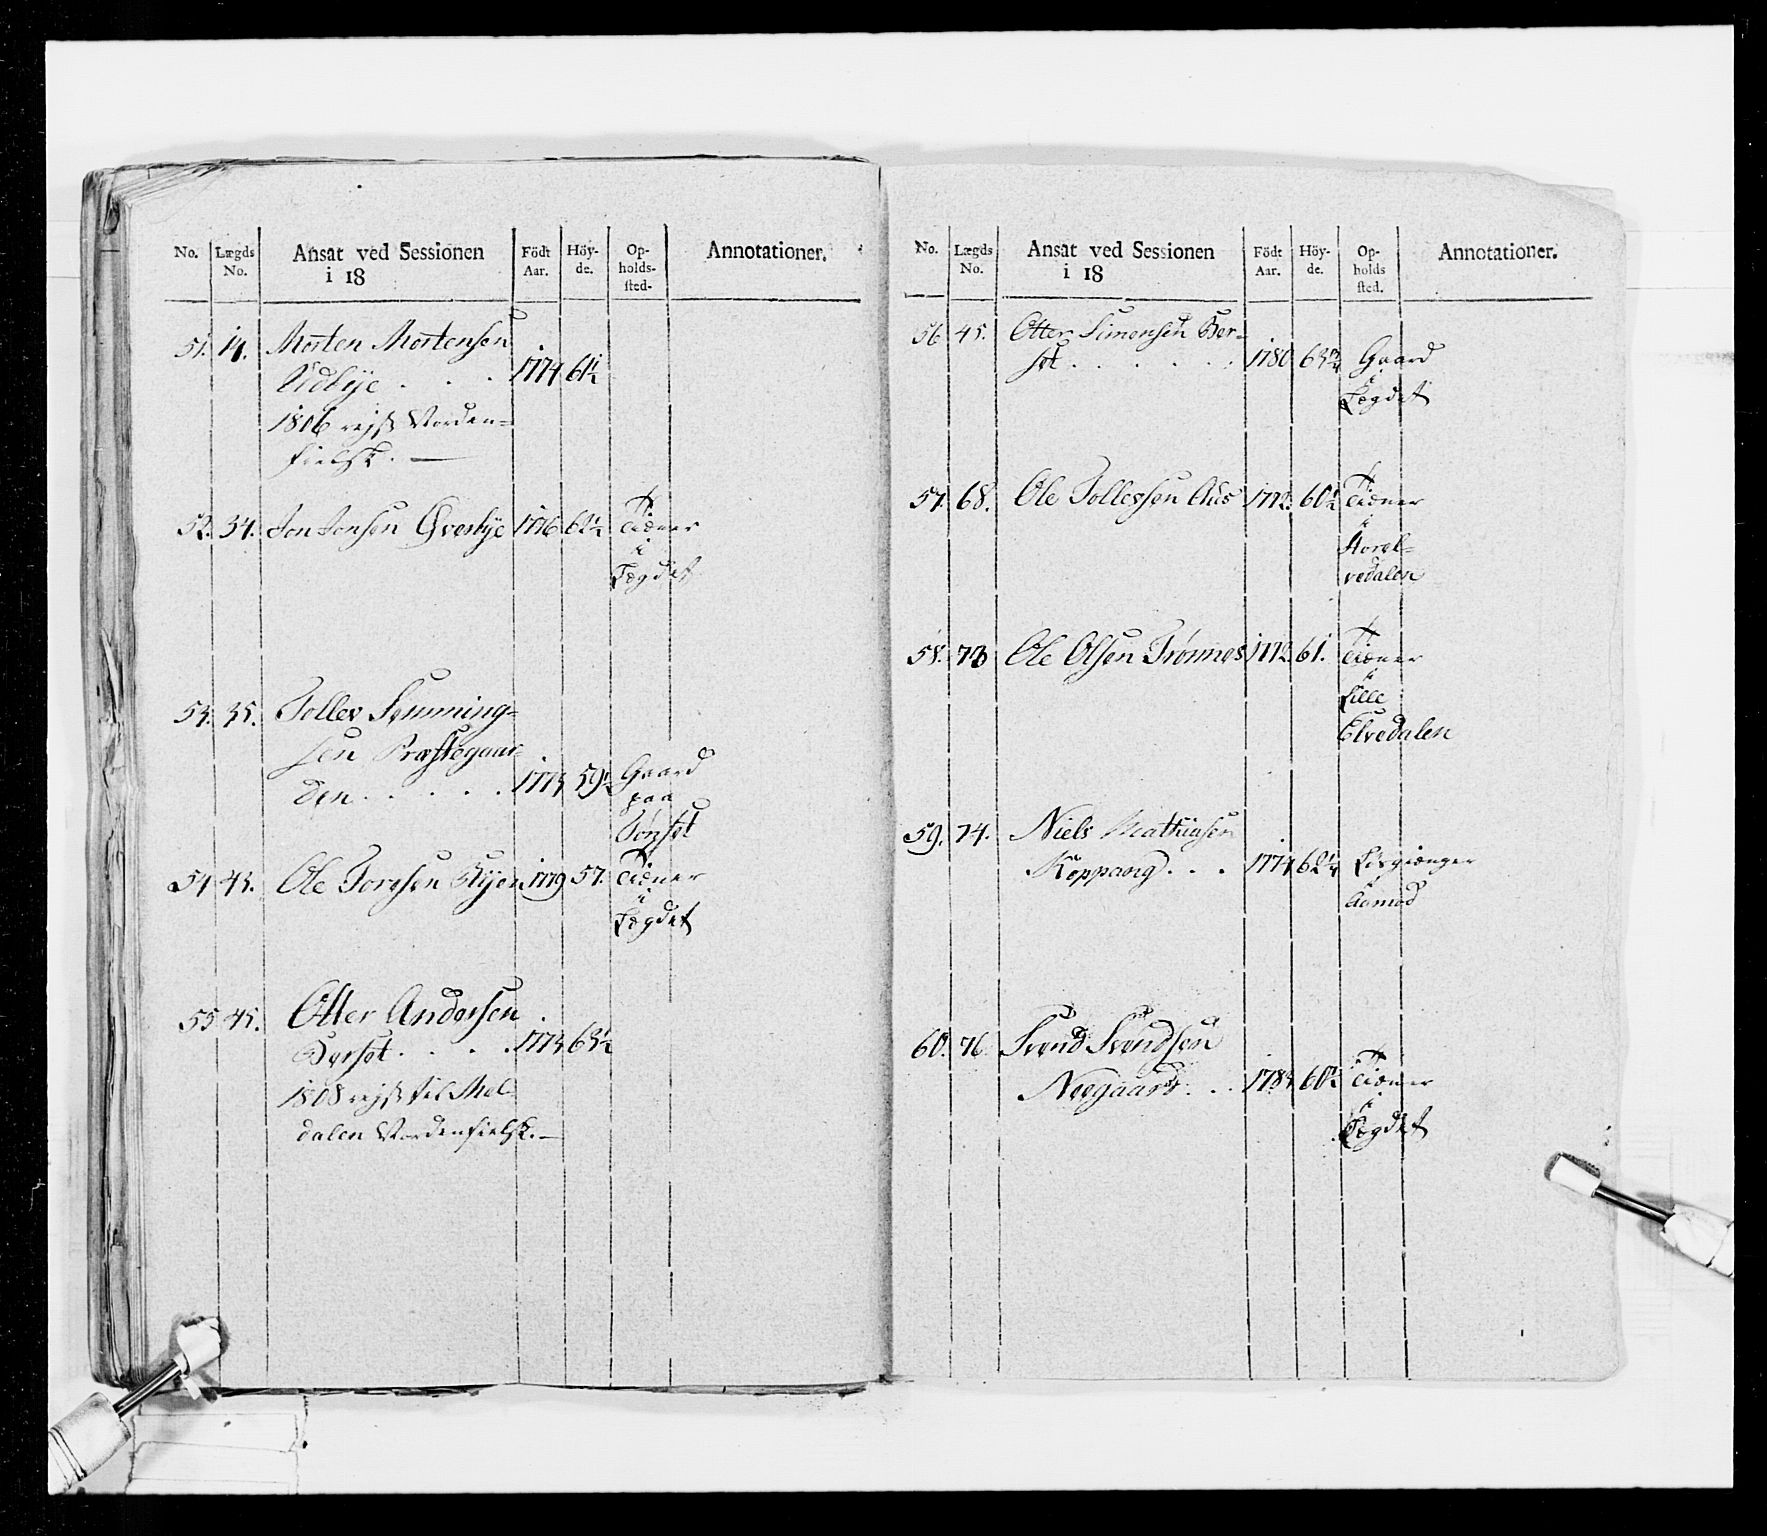 No. Lægds No. Ansat ved Sessionen i 18 Födt Aar. Höy-de. Op-holds-sted. Annotationer.
51. 14. Morten Mortensen
Udbye . . . 1774 61½
1806 rejst Norden=
fielsk. —
52. 34. Jon Jonsen Øvesbye 1776 62½ Tiæner
i
Lægdet
53. 35. Tollev Semming=
sen Præstegaar-
den . . . . . 1773 59½ Gaard
paa
Tønset
54 43. Ole Toresen Ryen 1779 57. Tiæner
i
Lægdet
55 45. Otter Andersen
Berset . . . . 1773 63½
1808 rejst til Mel-
dalen Nordenfielsk. —
No. Lægds No. Ansat ved Sessionen i 18 Födt Aar. Höy-de. Op-holds sted. Annotationer.
56 45. Otter Simensen Ber=
set . . . . . . 1780 63¾ Gaard
i
Lægdet
57. 68. Ole Tollefsen Aus 1772. 60½ Tiæner
i
Storel=
vedalen
58. 73 Ole Olsen Trønnes 1772. 61. Tiæner
i
Lille
Elvedalen
59. 74. Niels Mathiasen
Koppang . . . 1774 62¼ Løsgiænger
i
Aamod
60. 76. Svend Svendsen
Neegaard . . 1783 60½ Tiæner
i
Lægdet